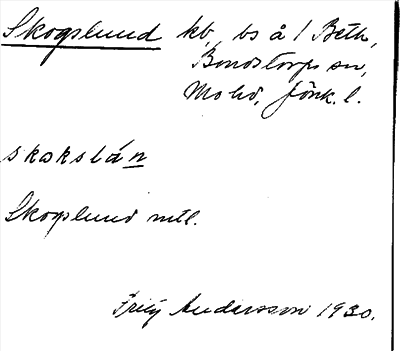 Skogslund kb, bs å 1 Beth,
Bondstorps sn,
Mo hd, Jönk. l.
skoksláṉ
Skogslund mtl.
Fritz Andersson 1930.